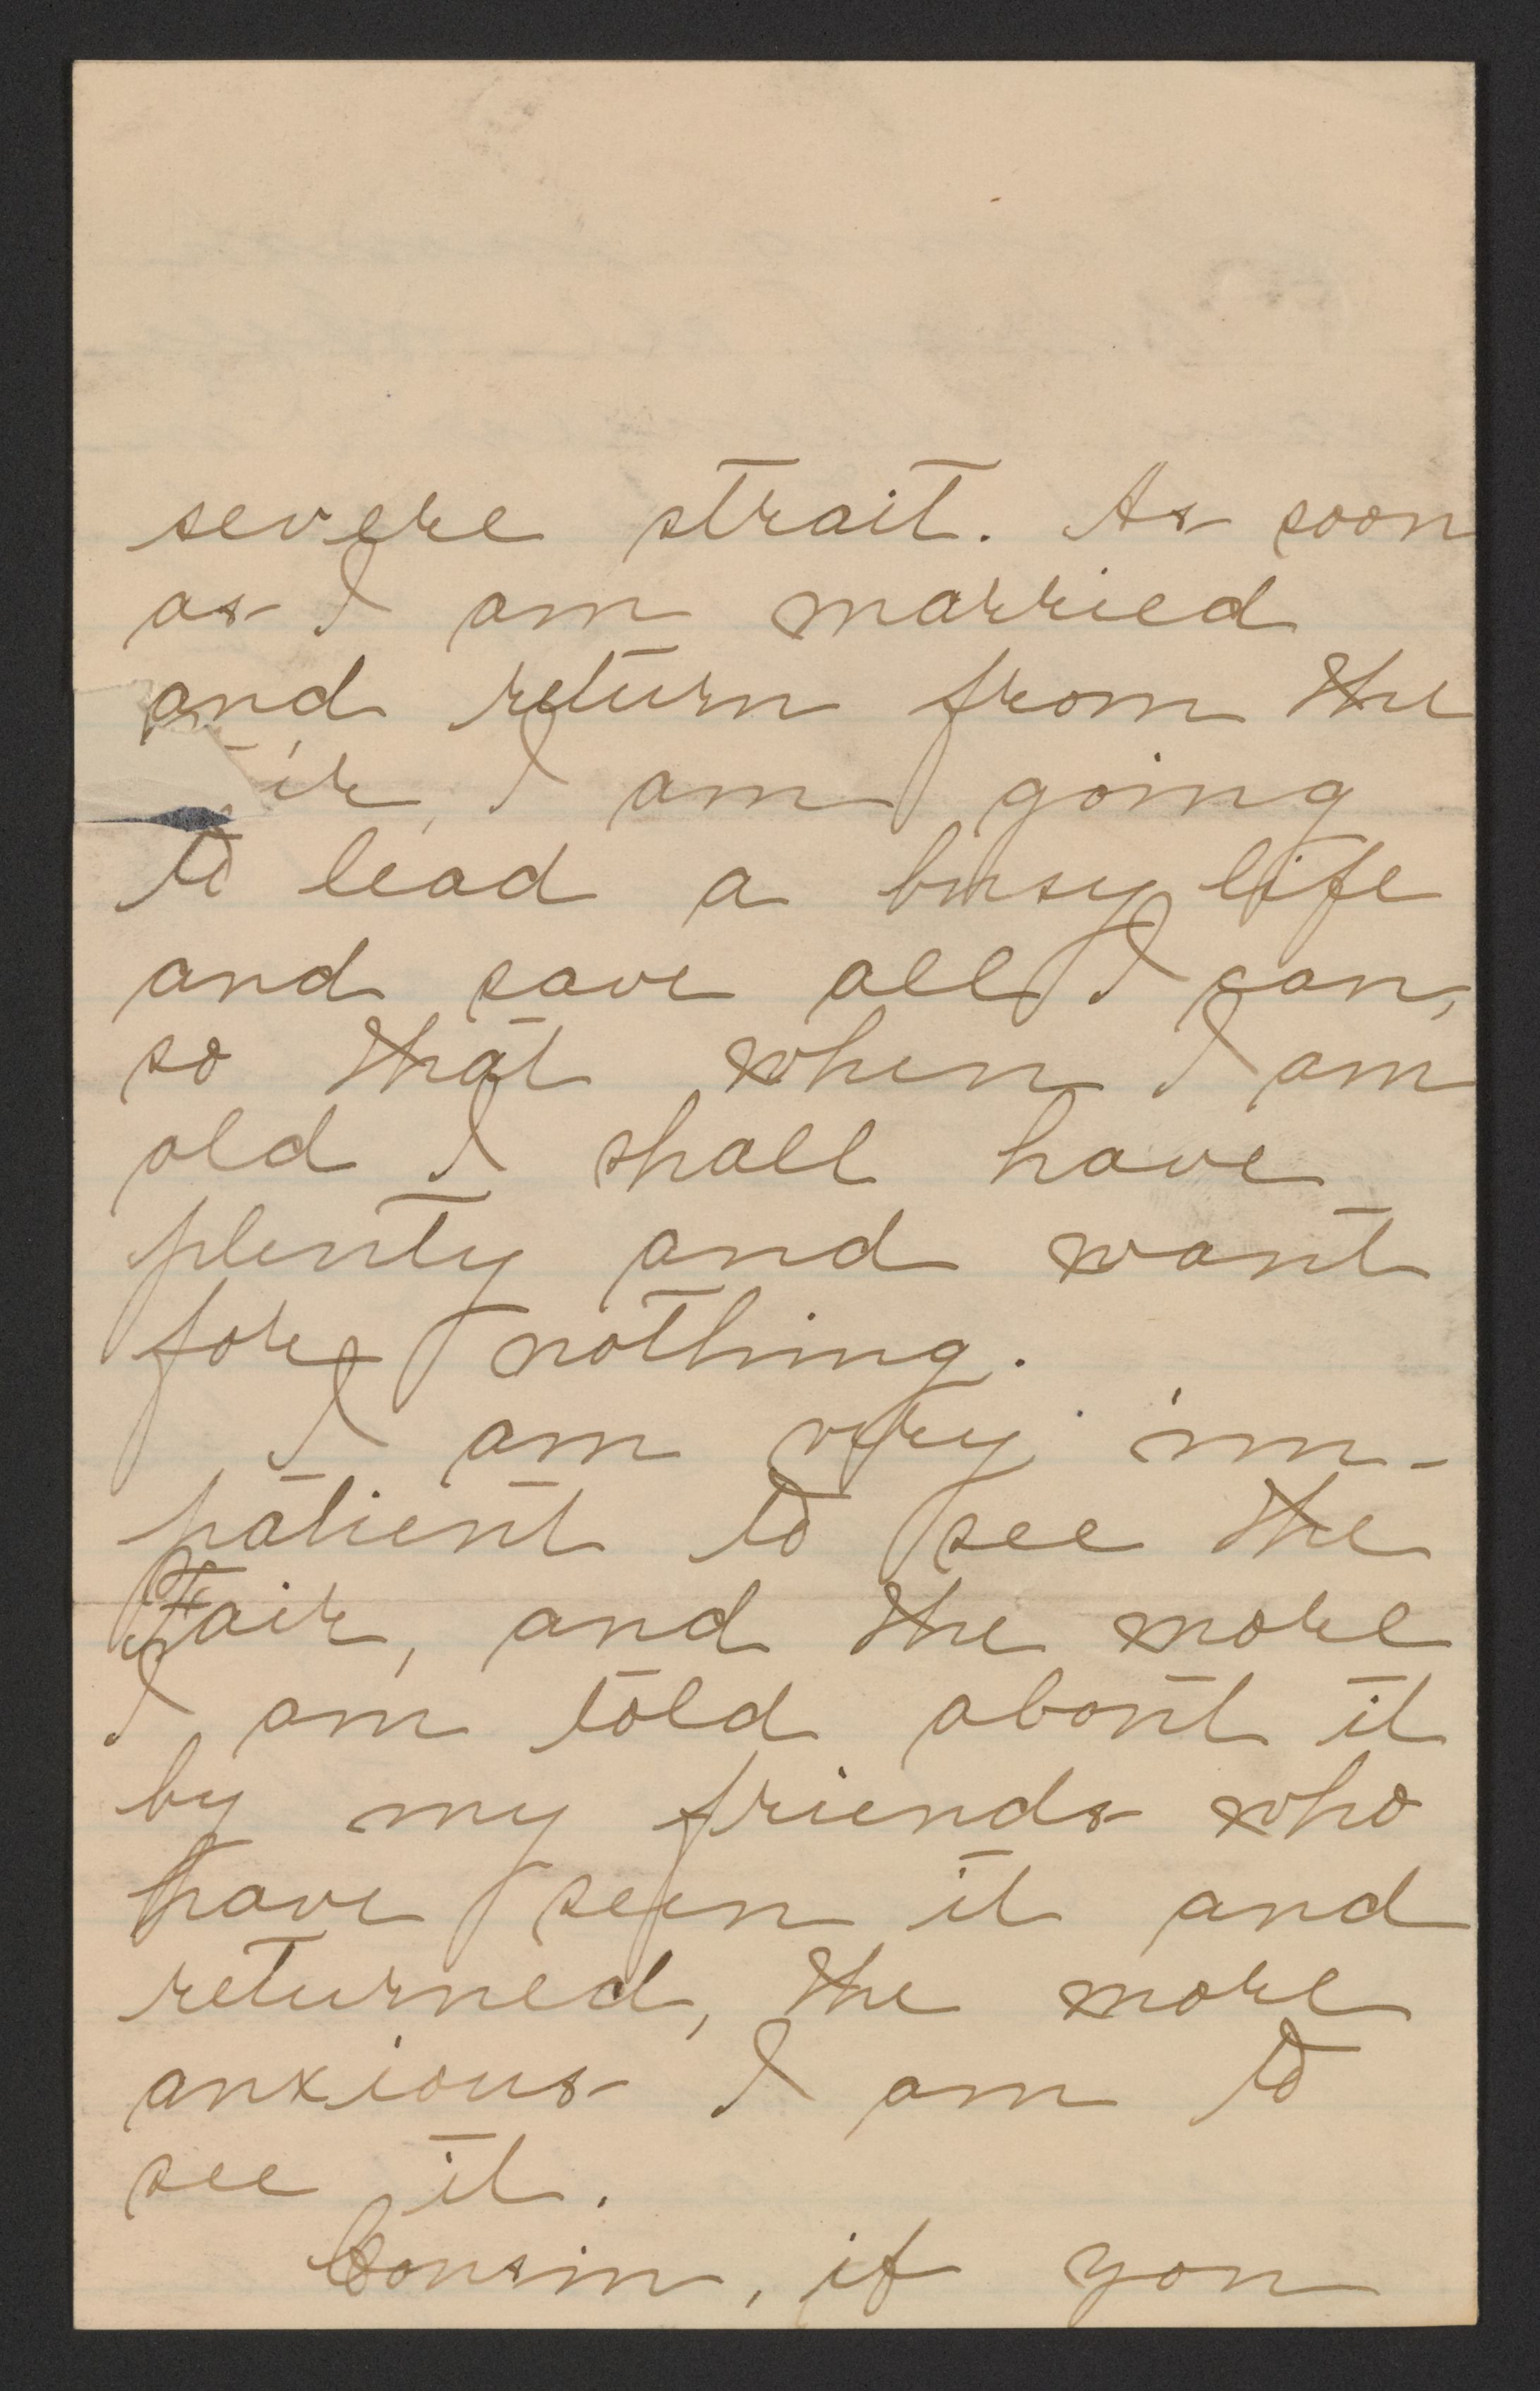 severe strait. As soon
as I am married
and return from the
ir, I am going
to lead a busy life
and save all I can,
so that when I am
old I shall have
plenty and want
for nothing.
I am very im-
patient to see the
Fair, and the more
I am told about it
by my friends who
have seen it and
returned, the more
anxious I am to
see it.
Cousin, if you